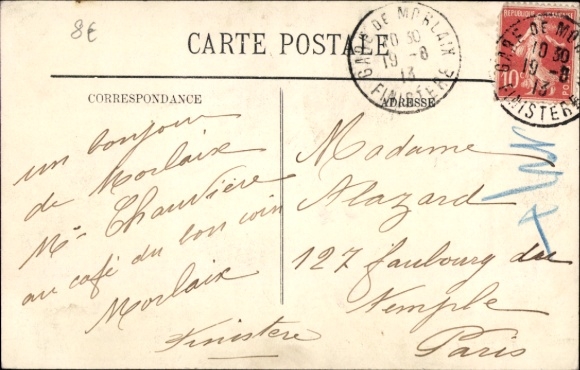 8€
CARTE POSTALE
GARE DE MORLAIX
10 30
19 - 8
13
FINISTERE
REPUBLIQUE FRANÇAISE
10c
POSTES
GARE DE MO
10 30
19 - 8
13
FINISTERE
CORRESPONDANCE
un bonjour
de Morlaix
Me Chauvière
au café du bon coin
Morlaix
Finistere
ADRESSE
Madame
Alazard
127 faubourg du
Temple
Paris